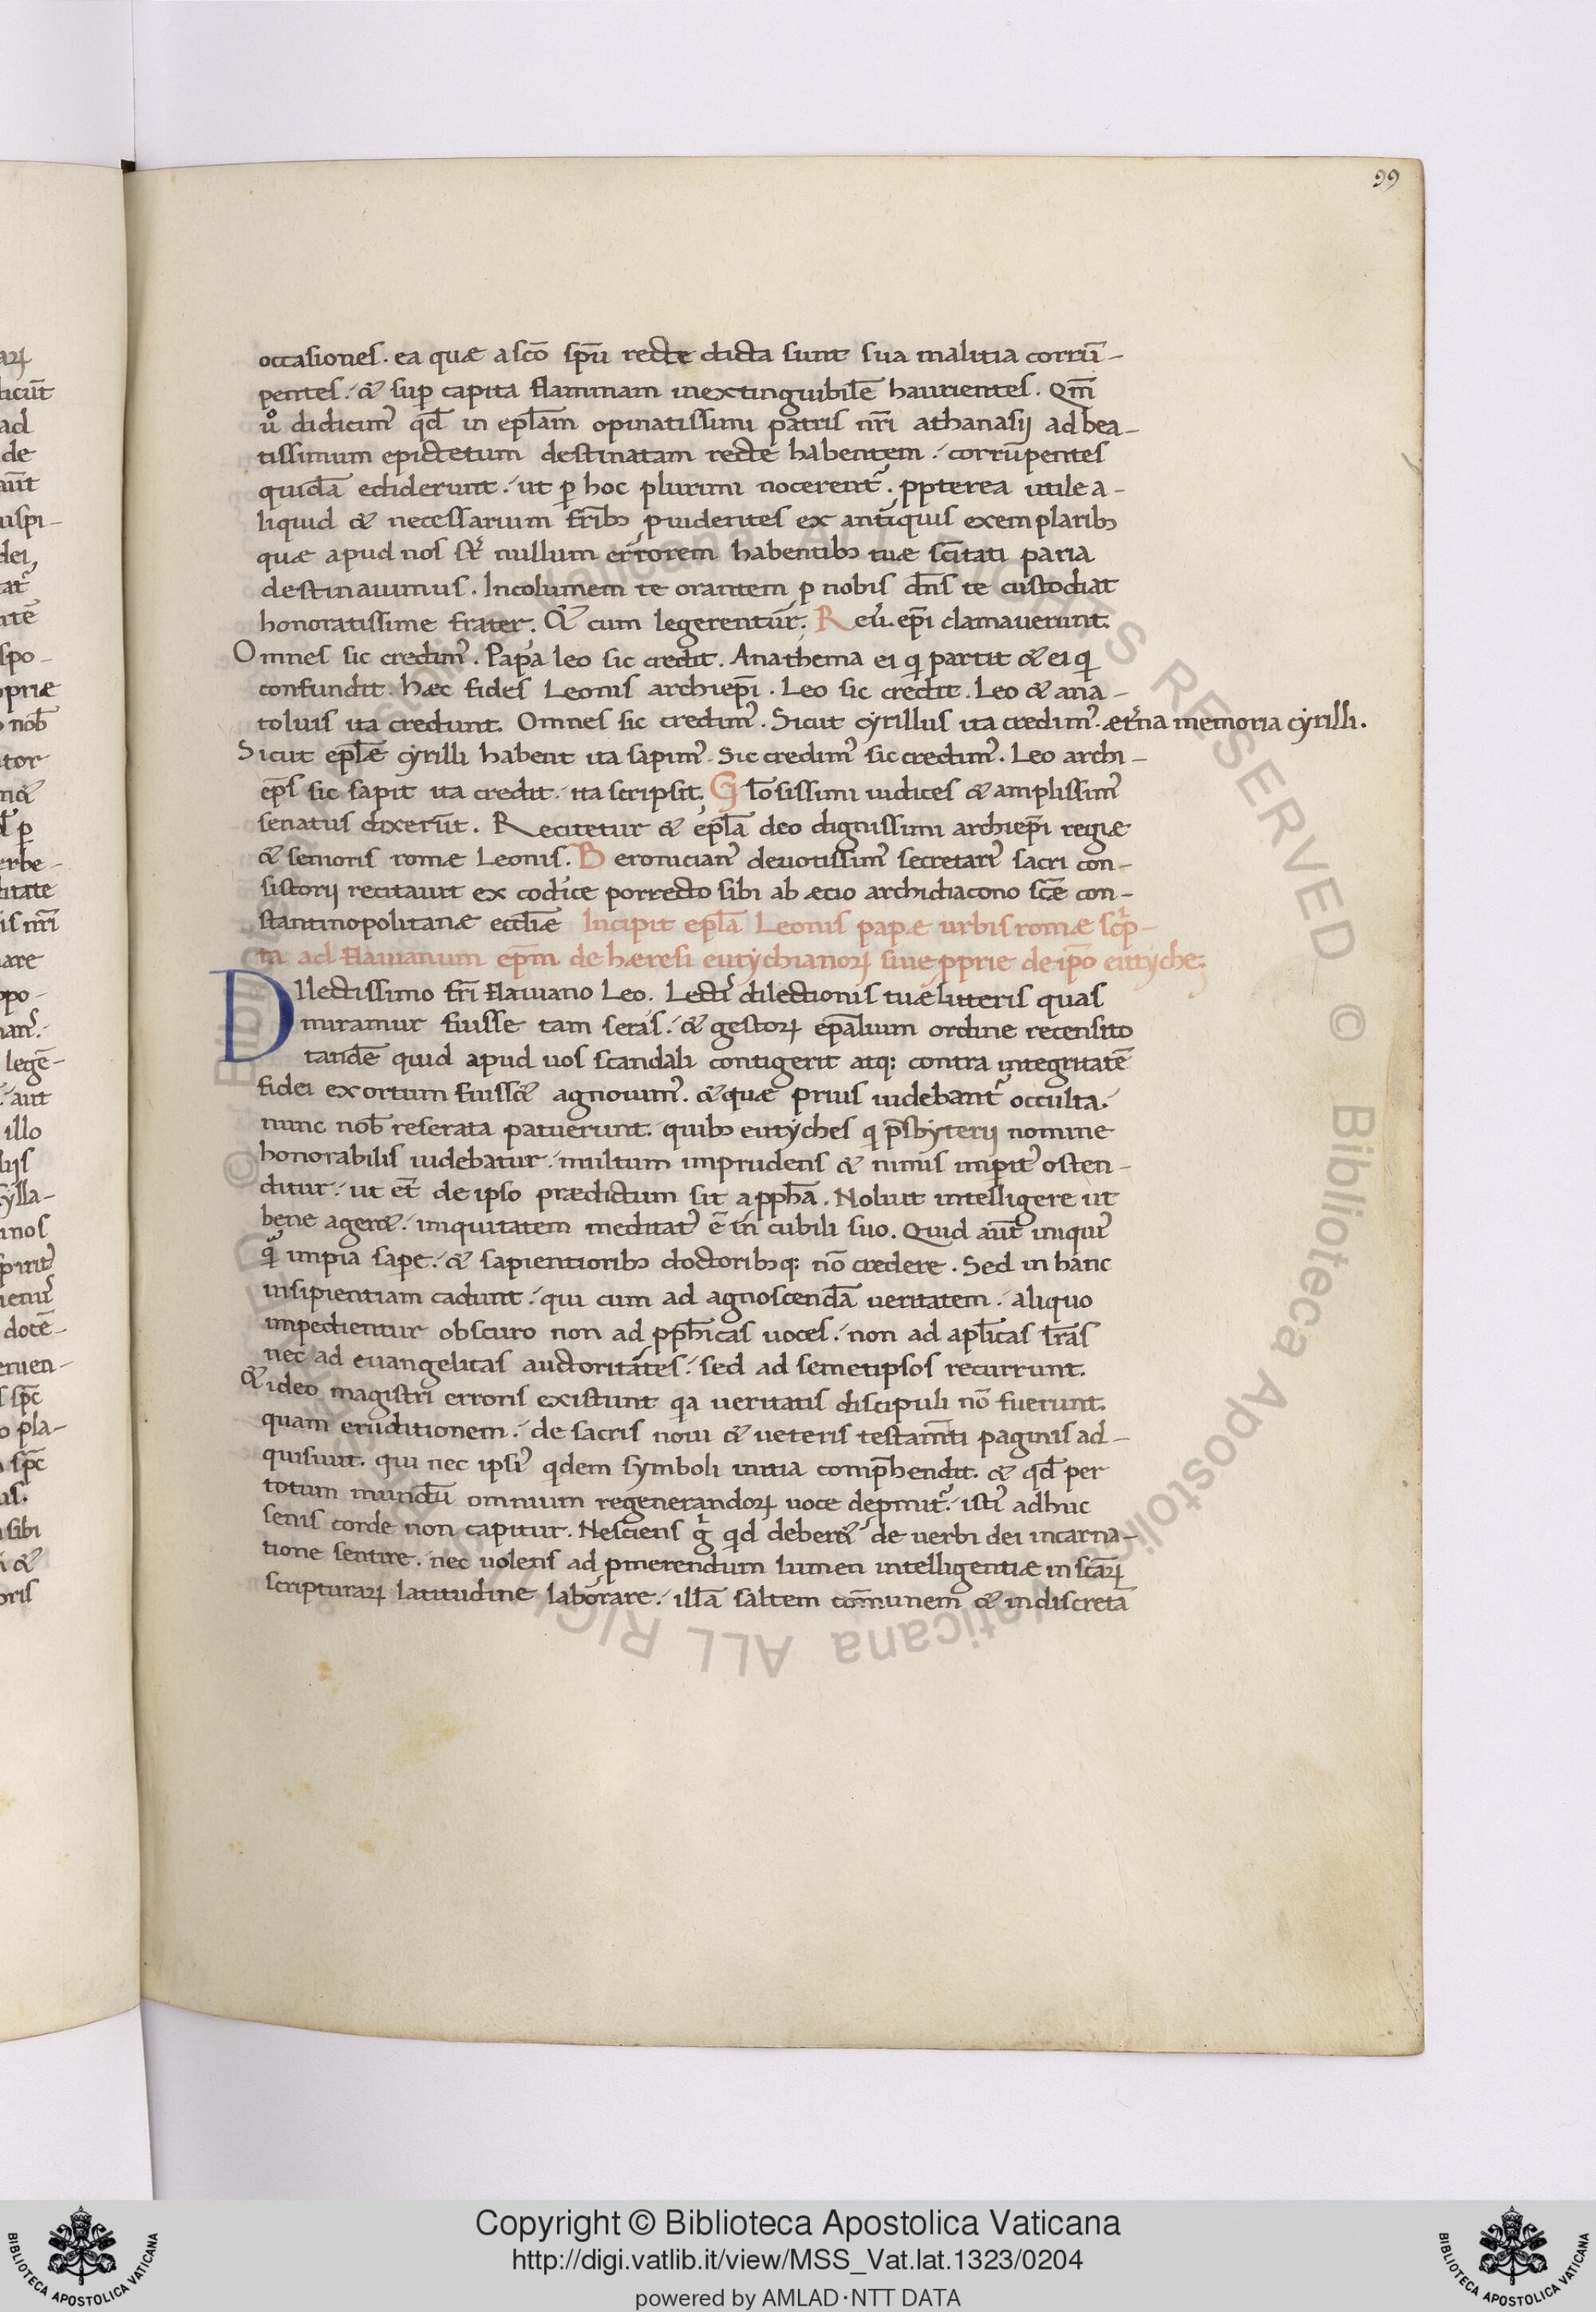 99
occasiones. ea quæ a sco᷑ spu᷑ recte dicta sunt sua malitia corru᷑-
pentes. & sup capita flammam inextinguibile᷑ haurientes. Qm᷑
uº didicim᷒ qd᷑ in epl᷑am opinatissimi patris nr᷑i athanasij ad bea-
tissimum epictetum destinatam recte habentem. corru᷑pentes
quida᷑ ediderunt. ut p hoc plurimi nocerent᷑. ppterea utile a-
liquid & necessarium fr᷑ib; puidentes ex antiquis exemplarib;
quæ apud nos st᷑ nullum errorem habentib; tuæ sc᷑itati paria
destinauimus. Incolumem te orantem p nobis dn᷑s te custodiat
honoratissime frater. & cum legerentur. Reu᷑. ep᷑i clamauerunt.
Omnes sic credim᷒. Papa leo sic credit. Anathema ei q partit & ei q
confundit. hæc fides Leonis archiep᷑i. Leo sic credit. Leo & ana-
tolius ita credunt. Omnes sic credim᷒. Sicut cyrillus ita credim᷒. æt᷑na memoria cyrilli.
Sicut epl᷑æ cyrilli habent ita sapim᷒. Sic credim᷒ sic credim᷒. Leo archi-
ep᷑s sic sapit ita credit. ita scripsit. Gl᷑osissimi iudices & amplissim᷒
senatus dixeru᷑t. Recitetur & epl᷑a deo dignissimi archiep᷑i regiæ
& senioris romæ Leonis. Beronician᷒ deuotissim᷒ secretari᷒ sacri con-
sistorij recitauit ex codice porrecto sibi ab aetio archidiacono sc᷑æ con-
stantinopolitanæ eccl᷑iæ Incipit epl᷑a Leonis papæ urbis romæ scp᷑-
ta ad flauianum ep᷑m. de hæresi eutychianoꝝ siue pprie de ip᷑o eutyche;
DIlectissimo fr᷑i flauiano Leo. Lectis dilectionis tuæ litteris quas
miramur fuisse tam seras. & gestoꝝ ep᷑alium ordine recensito
tande᷑ quid apud uos scandali contigerit atq; contra integritate᷑
fidei exortum fuiss& agnouim᷒. & quæ prius uidebant᷑ occulta.
nunc nob᷑ reserata patuerunt. quib; eutyches q p᷑sbyterij nomine
honorabilis uidebatur. multum imprudens & nimis imperit᷒ osten-
ditur. ut et᷑ de ipso prædictum sit a pph᷑a. Noluit intelligere ut
bene ager&. iniquitatem meditat᷒ e᷑ in cubili suo. Quid aut᷑ iniqui᷒
q᷑ impia sape. & sapientiorib; doctorib;q; no᷑ credere. Sed in hanc
insipientiam cadunt. qui cum ad agnoscenda᷑ ueritatem. aliquo
impedientur obscuro non ad pph᷑icas uoces. non ad apl᷑icas lr᷑as
nec ad euangelicas auctoritates. sed ad semetipsos recurrunt.
& ideo magistri erroris existunt qa ueritatis discipuli no᷑ fuerunt.
quam eruditionem. de sacris noui & ueteris testam᷑ti paginis ad-
quisiuit. qui nec ipsi᷒ qdem symboli initia comp᷑hendit. & qd᷑ per
totum mundu᷑ omnium regenerandoꝝ uoce depmit᷑. isti᷒ adhuc
senis corde non capitur. Nesciens g᷑ qid deber& de uerbi dei incarna-
tione sentire. nec uolens ad pmerendum lumen intelligentiæ in sc᷑aꝝ
scripturaꝝ latitudine laborare. illa᷑ saltem co᷑munem & indiscreta᷑
Copyright © Biblioteca Apostolica Vaticana
http://digi.vatlib.it/view/MSS_Vat.lat.1323/0204
powered by AMLAD·NTT DATA